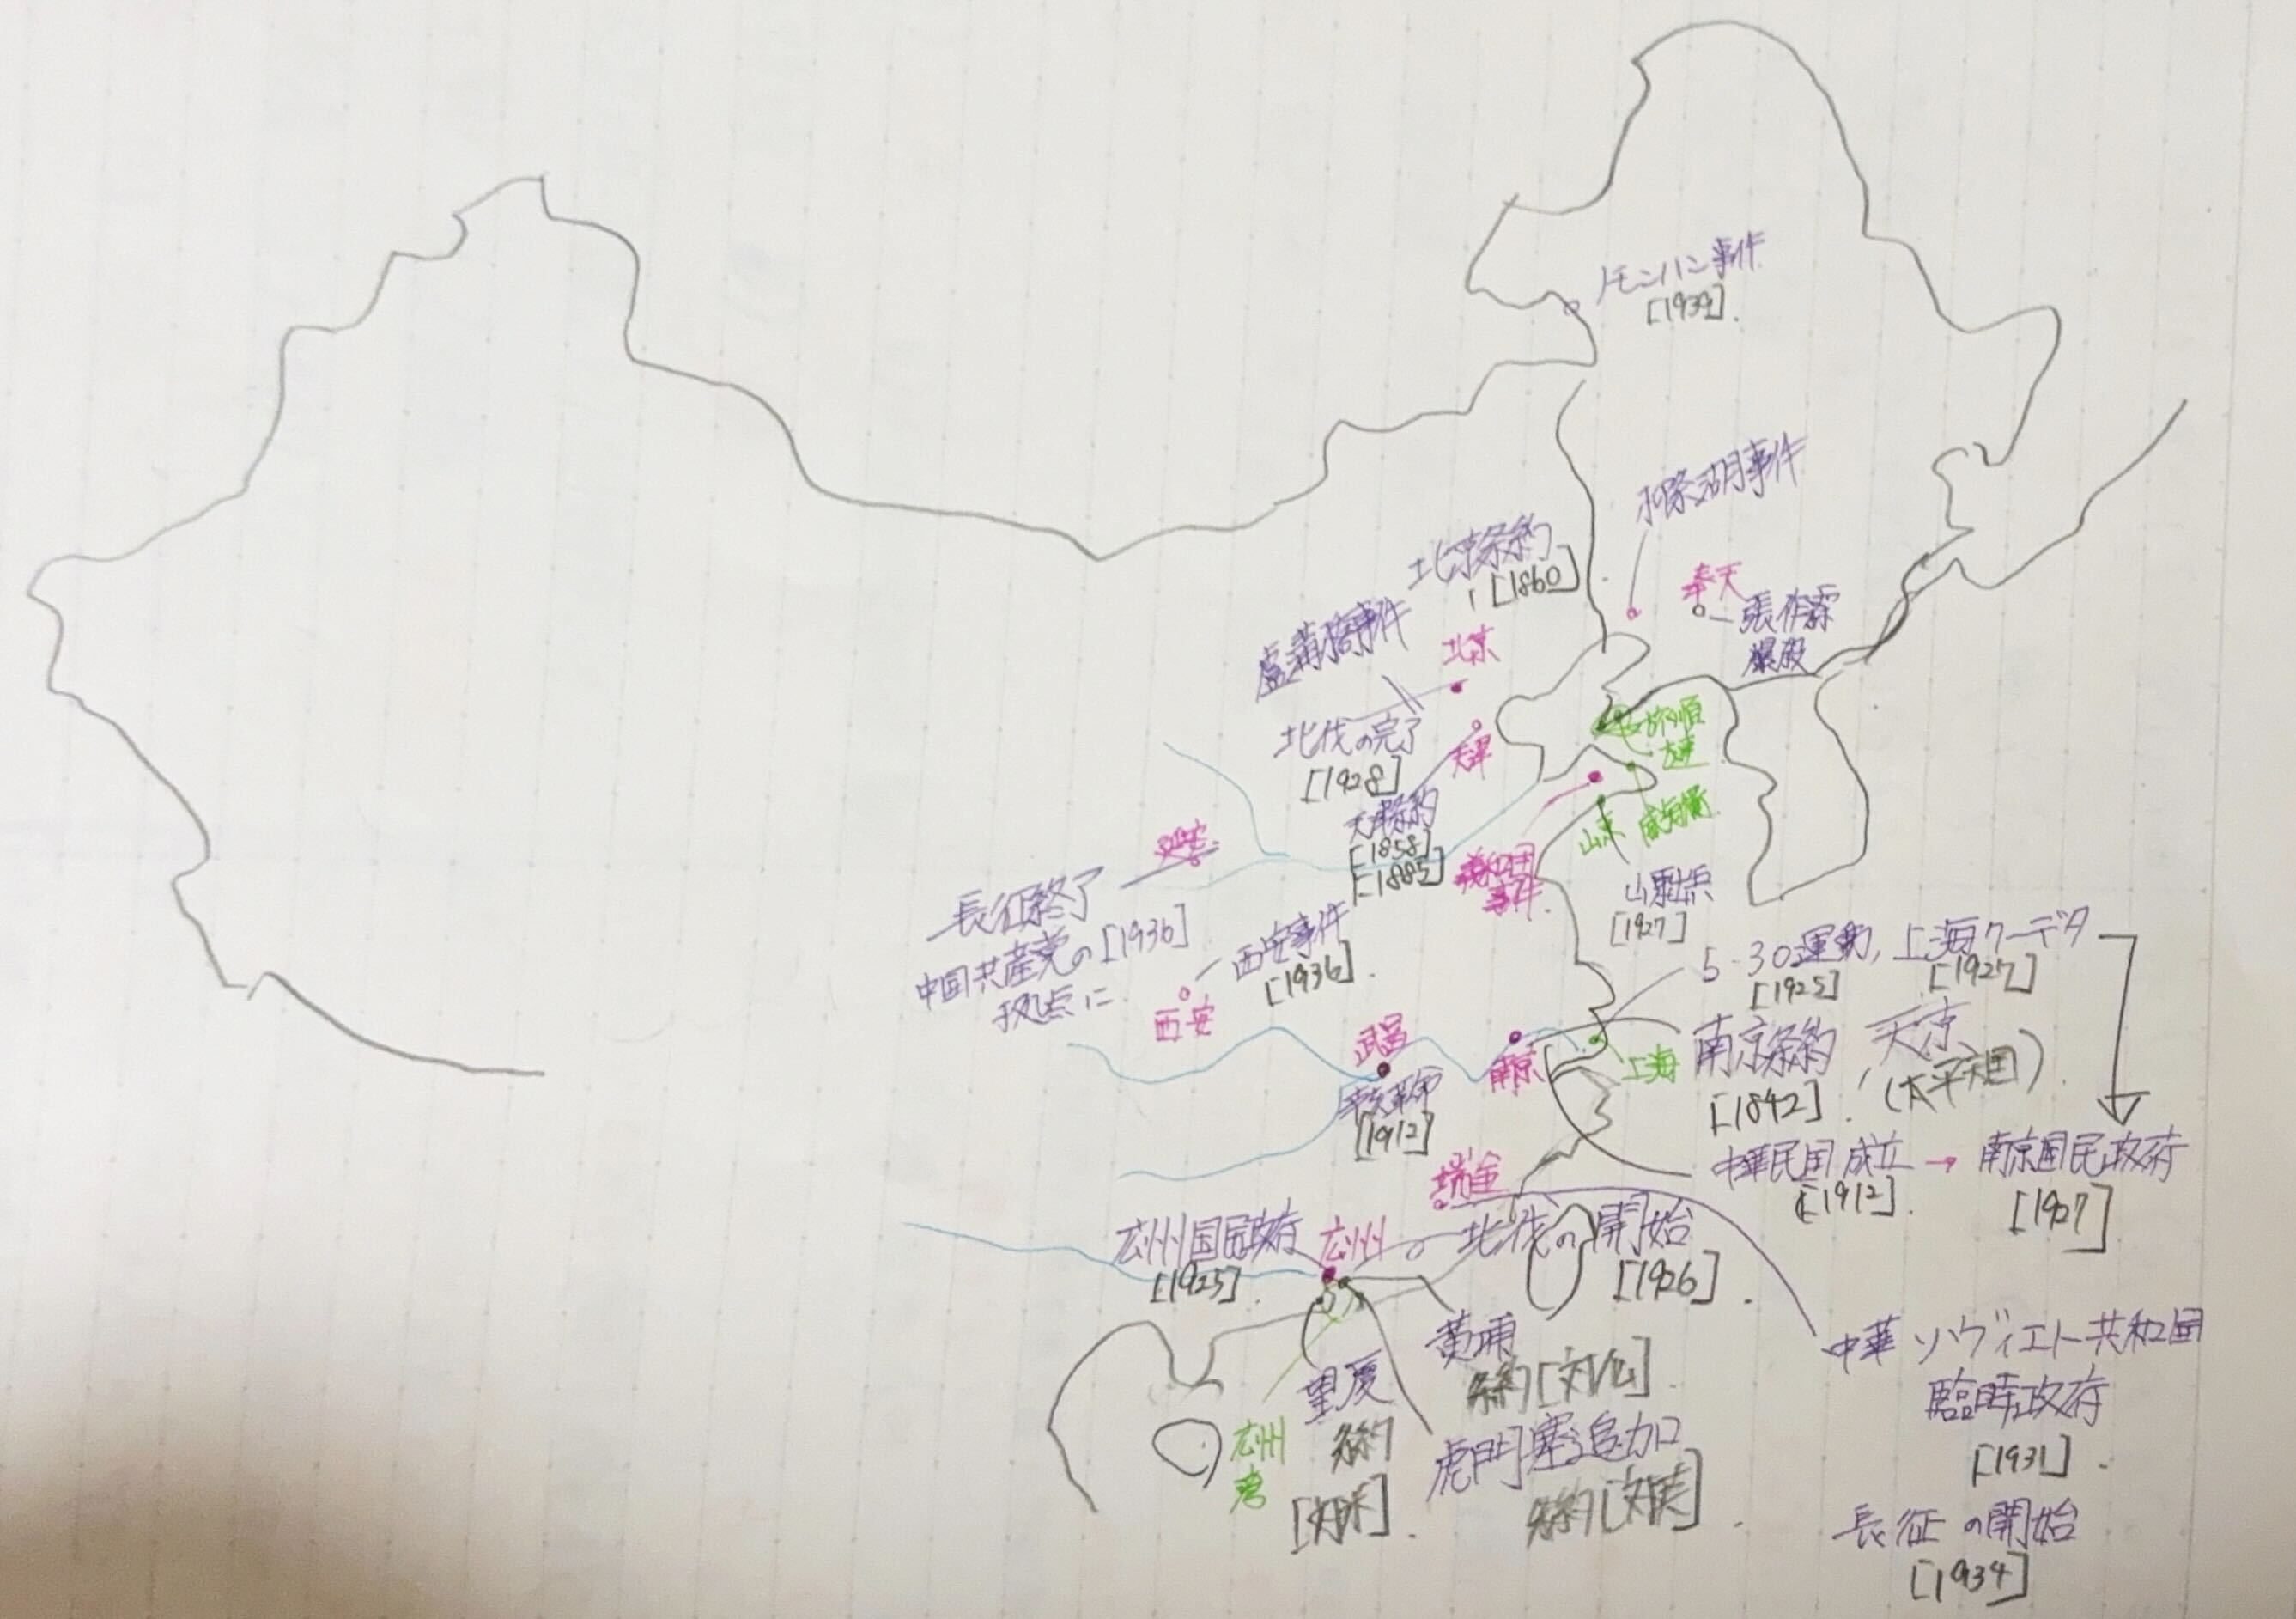 ノモンハン事件
[1939].
柳条湖事件
北京条約
[1860]
奉天
張作霖
爆殺
盧溝橋事件
北京
北伐の完了
[1928]
天津
旅順
大連
天津条約
[1858]
[1885]
山東
威海衛
義和団
事件.
山東出兵
[1927]
延安
長征終了
[1936]
中国共産党の
拠点に.
西安事件
[1936].
西安
5・30運動, 上海クーデタ
[1925] [1927]
武昌
辛亥革命
[1912]
南京
上海
南京条約, 天京
[1842]. (太平天国).
中華民国成立 → 南京国民政府
[1912]. [1927]
瑞金
広州国民政府
[1925].
広州
北伐の開始
[1926].
黄埔
条約[対仏].
望厦
条約
[対米].
広州
湾
虎門寨追加
条約[対英].
中華ソヴィエト共和国
臨時政府
[1931].
長征の開始
[1934]